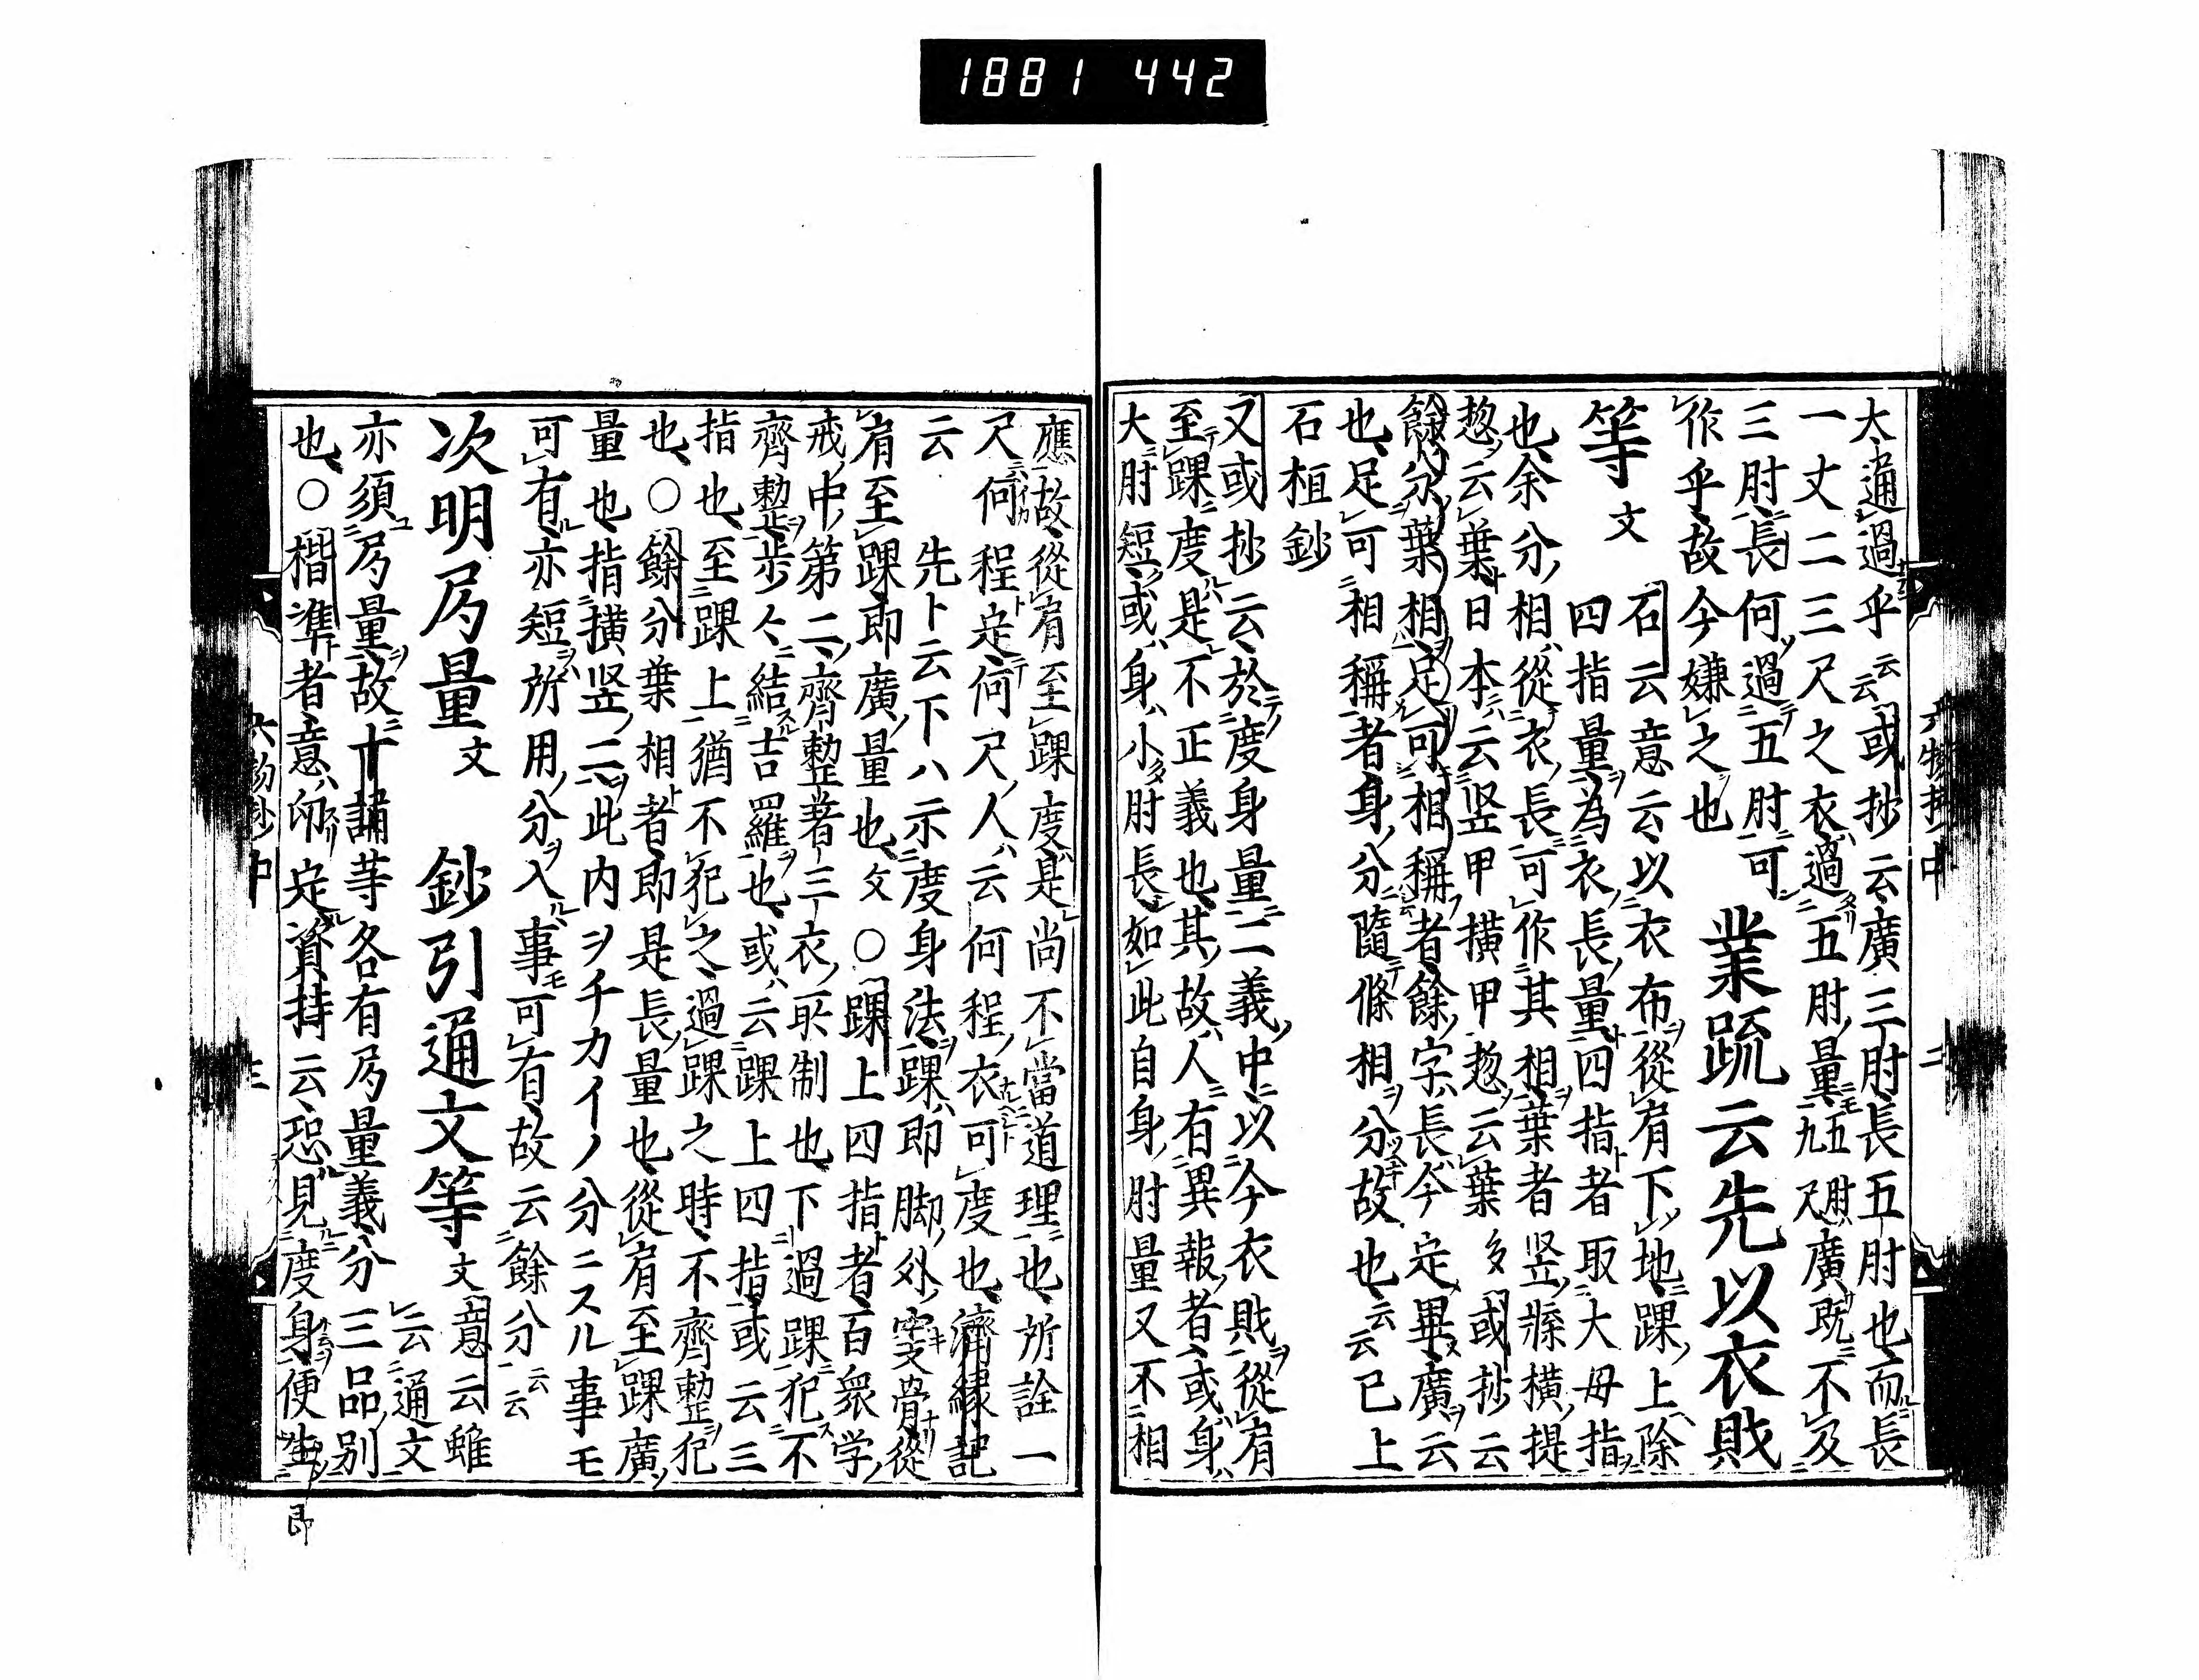 1881 442
大通過乎云云或抄云廣三肘長五肘也而長
一丈二三尺之衣過五肘量五肘九尺廣既不及
三肘長何過五肘可
作乎故今嫌之也 業疏云先以衣財
等文 石云意云以衣布從肩下地踝上除
四指量為衣長量四指者取大母指
也余分相從衣長可作其相葉者竖縣横提
惣云葉日本云竖甲横甲惣云葉多或抄云
餘分葉相足可相稱者餘字長今定畢廣云
也足可相稱者身分隨條相分故也云云已上
石桓鈔
又或抄云於度身量二義中以今衣財從肩
至踝度是不正義也其故人有異報者或身
大肘短或身小肘長如此自身肘量又不相
應故從肩至踝度是尚不當道理也所詮一
尺何程定何尺人云何程衣可度也濟縁記
云 先卜云下八示度身法踝即脚外突骨從
肩至踝即廣量也文○踝上四指者百衆学
戒中第二齊整著三衣取制也下過踝犯不
齊整步々結吉羅也或云踝上四指或云三
指也至踝上猶不犯之過踝之時不齊整犯
也○餘分葉相者即是長量也從肩至踝廣
量也指横竖二此内ヲチカイノ分ニスル事モ
可有亦短所用分入事可有故云餘分云云
次明局量文 鈔引通文等文 意云雖
云通文
亦須局量故十誦等各有局量義分三品別
也○楷準者意師定資持云恐見度身便生
即
六物抄中 二
六物抄中 三